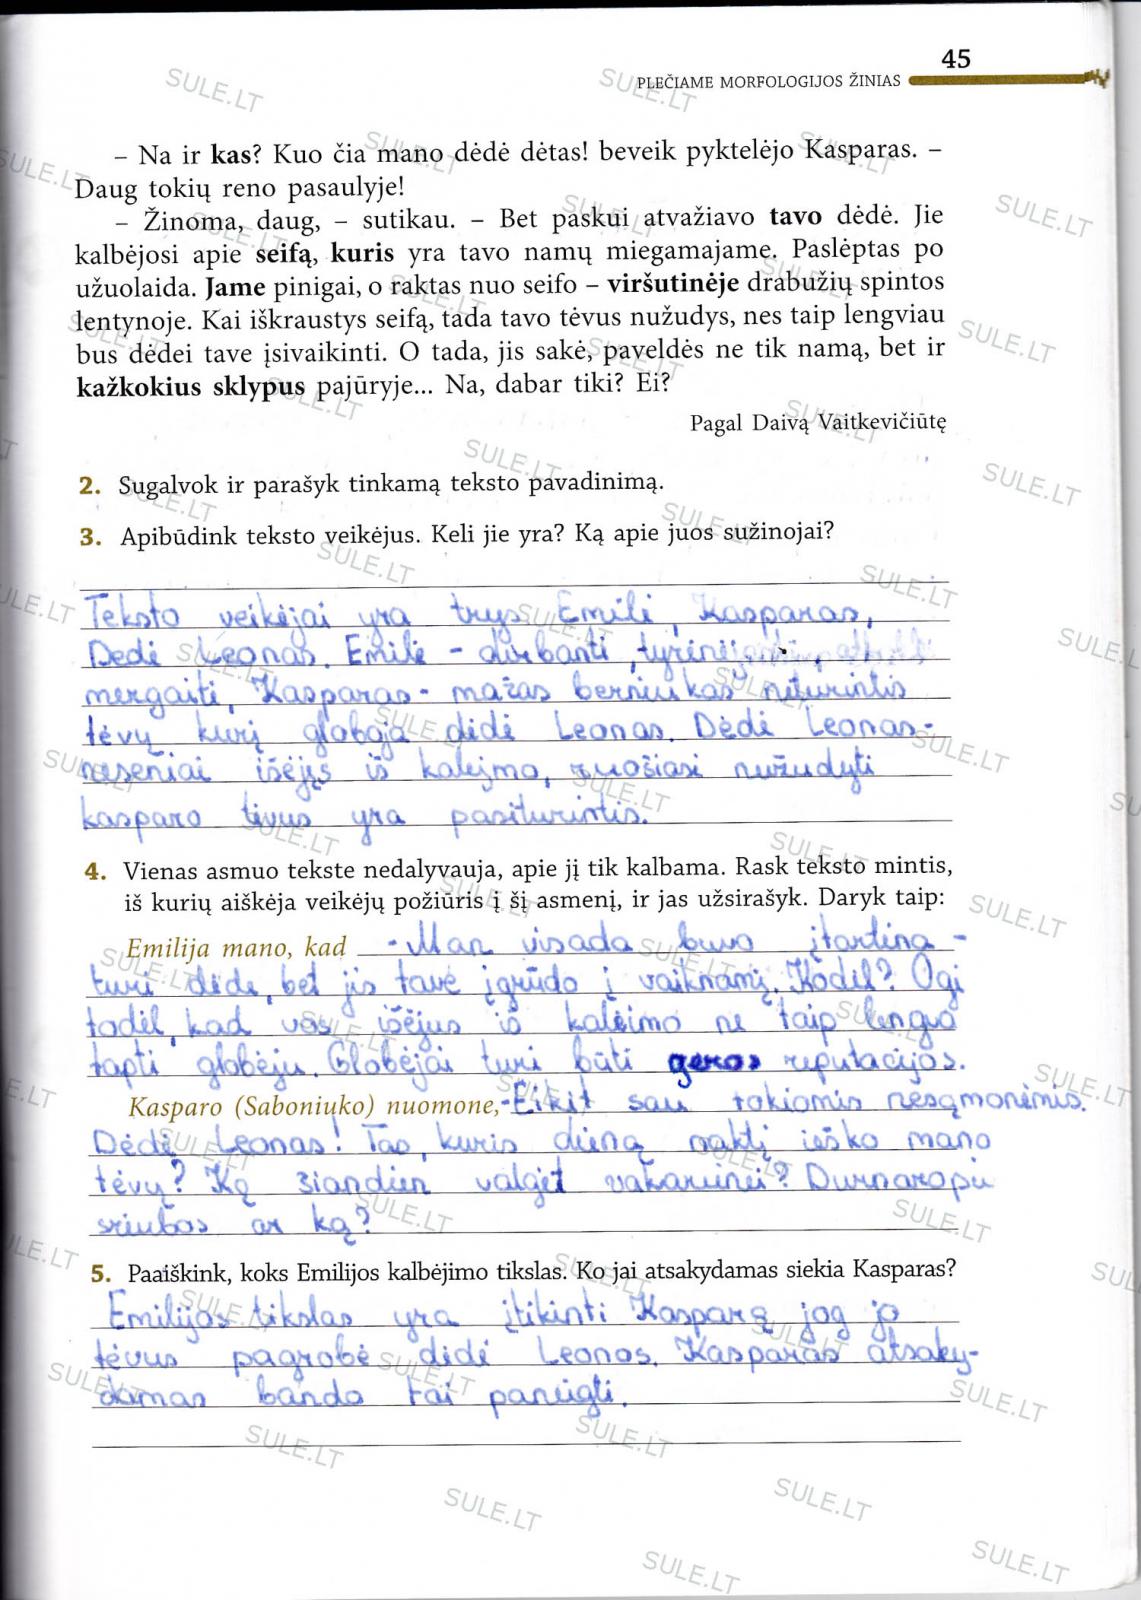 45
PLEČIAME MORFOLOGIJOS ŽINIAS
– Na ir kas? Kuo čia mano dėdė dėtas! beveik pyktelėjo Kasparas. –
Daug tokių reno pasaulyje!
– Žinoma, daug, – sutikau. – Bet paskui atvažiavo tavo dėdė. Jie
kalbėjosi apie seifą, kuris yra tavo namų miegamajame. Paslėptas po
užuolaida. Jame pinigai, o raktas nuo seifo – viršutinėje drabužių spintos
lentynoje. Kai iškraustys seifą, tada tavo tėvus nužudys, nes taip lengviau
bus dėdei tave įsivaikinti. O tada, jis sakė, paveldės ne tik namą, bet ir
kažkokius sklypus pajūryje... Na, dabar tiki? Ei?
Pagal Daivą Vaitkevičiūtę
2. Sugalvok ir parašyk tinkamą teksto pavadinimą.
3. Apibūdink teksto veikėjus. Keli jie yra? Ką apie juos sužinojai?
Teksto veikėjai yra trys Emilė, Kasparas,
Dėdė Leonas. Emilė – dirbanti,
mergaitė, Kasparas - mažas berniukas neturintis
tėvų kurį globoja dėdė Leonas. Dėdė Leonas-
neseniai išėjęs iš kalėjmo, ruošiasi nužudyti
kasparo tėvus yra pasiturintis.
4. Vienas asmuo tekste nedalyvauja, apie jį tik kalbama. Rask teksto mintis,
iš kurių aiškėja veikėjų požiūris į šį asmenį, ir jas užsirašyk. Daryk taip:
Emilija mano, kad -Man visada buvo įtartina -
turi dėdę, bet jis tave įgrūdo į vaiknamį. Kodėl? Ogi
todėl, kad vos išėjus iš kalėimo ne taip lengva
tapti globėju. Globėjai turi būti geros reputacijos.
Kasparo (Saboniuko) nuomone, -Eikit sau tokiomis nesąmonėmis.
Dėdė Leonas! Tas, kuris dieną naktį ieško mano
tėvų? Ką šiandien valgėt vakarienei? Durnaropių
sriubos ar ką?
5. Paaiškink, koks Emilijos kalbėjimo tikslas. Ko jai atsakydamas siekia Kasparas?
Emilijos tikslas yra įtikinti Kasparą jog jo
tėvus pagrobė dėdė Leonas. Kasparas atsaky-
damas bando tai paneigti.
SULE.LT